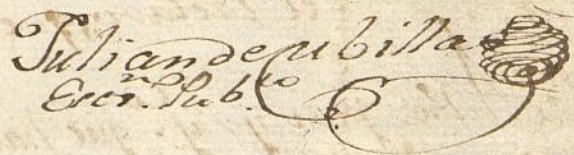 Julian de ubilla
Escr.no Pub.co